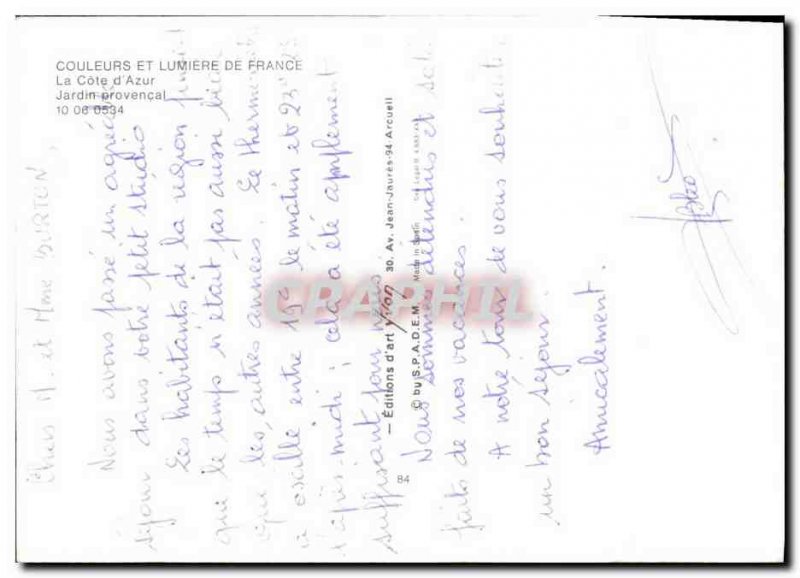 COULEURS ET LUMIERE DE FRANCE
La Côte d'Azur
Jardin provençal
10 06 0534
Chers M. et Mme BURTON,
Nous avons passé un agréable
séjour dans votre petit studio
Les habitants de la région
que le temps n'était pas aussi bien
que les autres années. Le thermomètre
a oscillé entre 19° le matin et 23°
l'après-midi ; cela a été amplement
suffisant pour nous.
Nous sommes détendus et satis
faits de nos vacances.
A notre tour de vous souhaiter
un bon séjour.
Amicalement.
— Éditions d'art Yvon 30. Av. Jean-Jaurès-94 Arcueil
© by S.P.A.D.E.M. Made in Spain
84
CPAPHIL